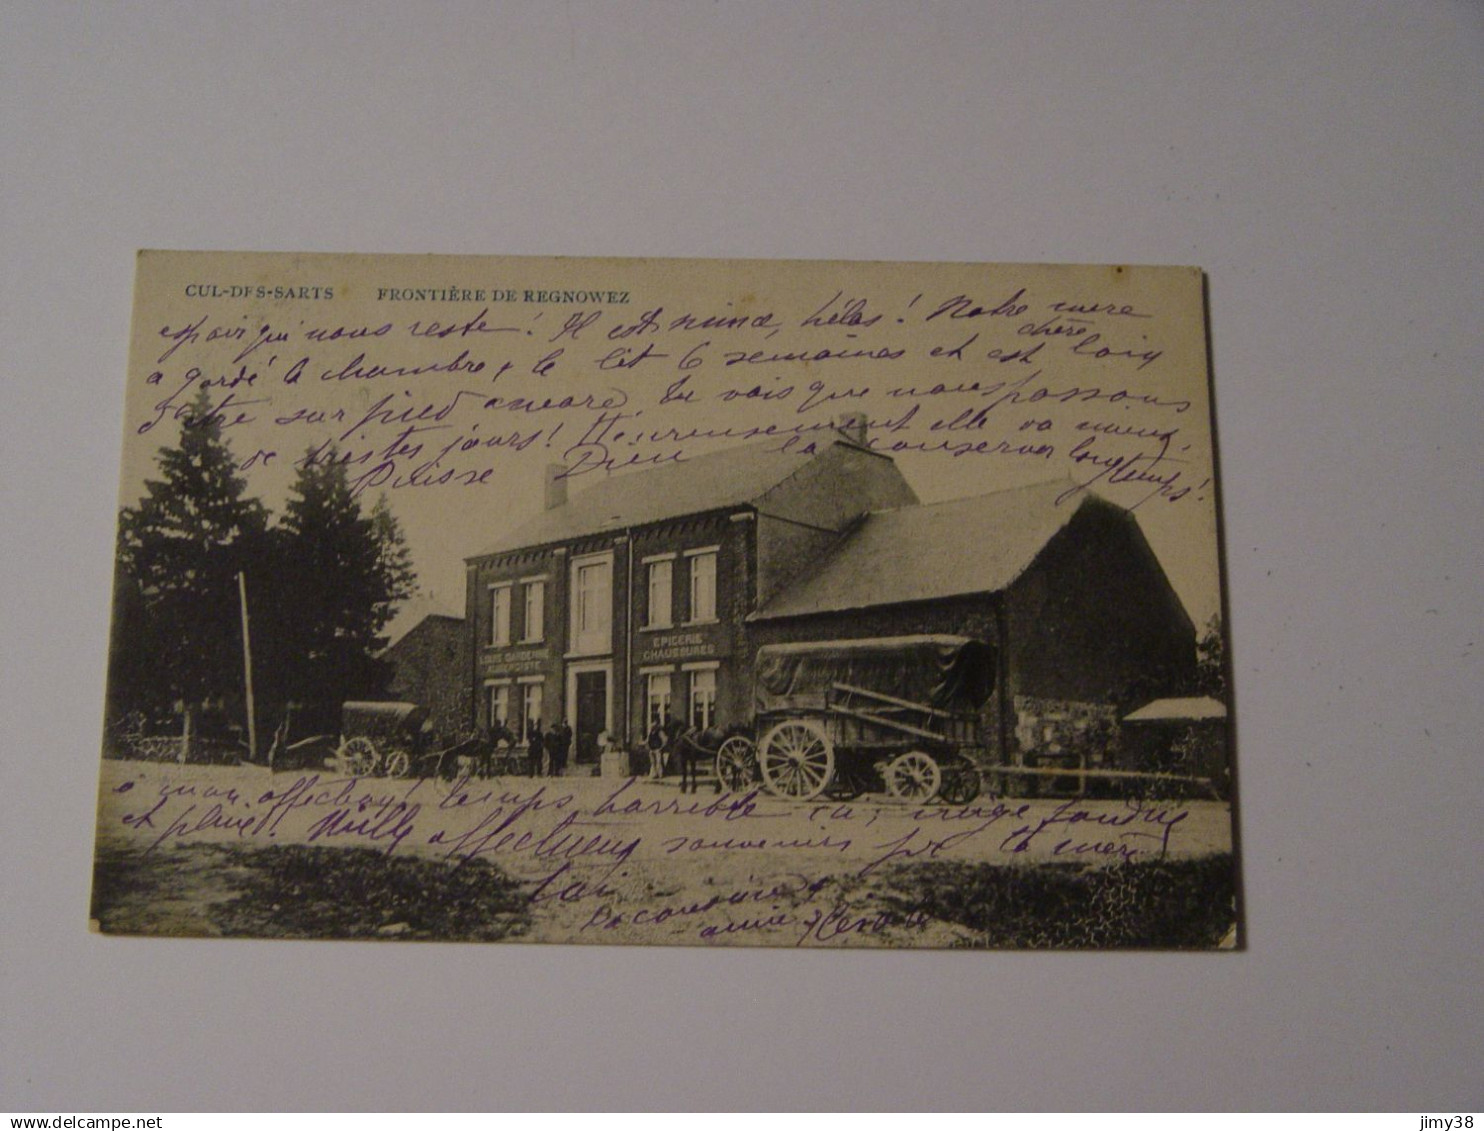 CUL-DES-SARTS FRONTIÈRE DE REGNOWEZ
espoir qui nous reste! Il est minime, hélas! Notre mère
chère
a gardé la chambre & le lit 6 semaines et est loin
d'être sur pied encore. Tu vois que nous passons
de tristes jours! Heureusement elle va mieux.
Puisse Dieu la conserver longtemps!
LOUIS GARDENNE
EPICERIE
CHAUSSURES
à mon affection! temps horrible ici, neige foudre
et pluie. Mille affectueux souvenirs pr ta mère
toi
Ta cousine &
amie
jimy38